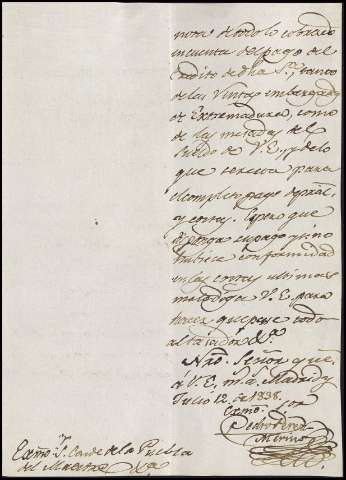 nota de todo lo cobrado
en cuenta del pago del
Credito de dha Sra, tanto
de las Rentas embargadas
de Extremadura, como
de las mitades del
Sueldo de V. E., y de lo
que se resta para
el completo pago de pral
y costas. Espero que
disponga su pago y si no
hubiese conformidad
en las costas ultimas
me lo diga V. E. para
hacer que pase todo
al tasador. Ds.
Nro. Señor gue.
á V. E. m. a. Madrid y
Julio 12 de 1838.
Exmo. Sor
Pedro Perez
Merino
Exmo. Sr. Conde de la Puebla
del Maestre